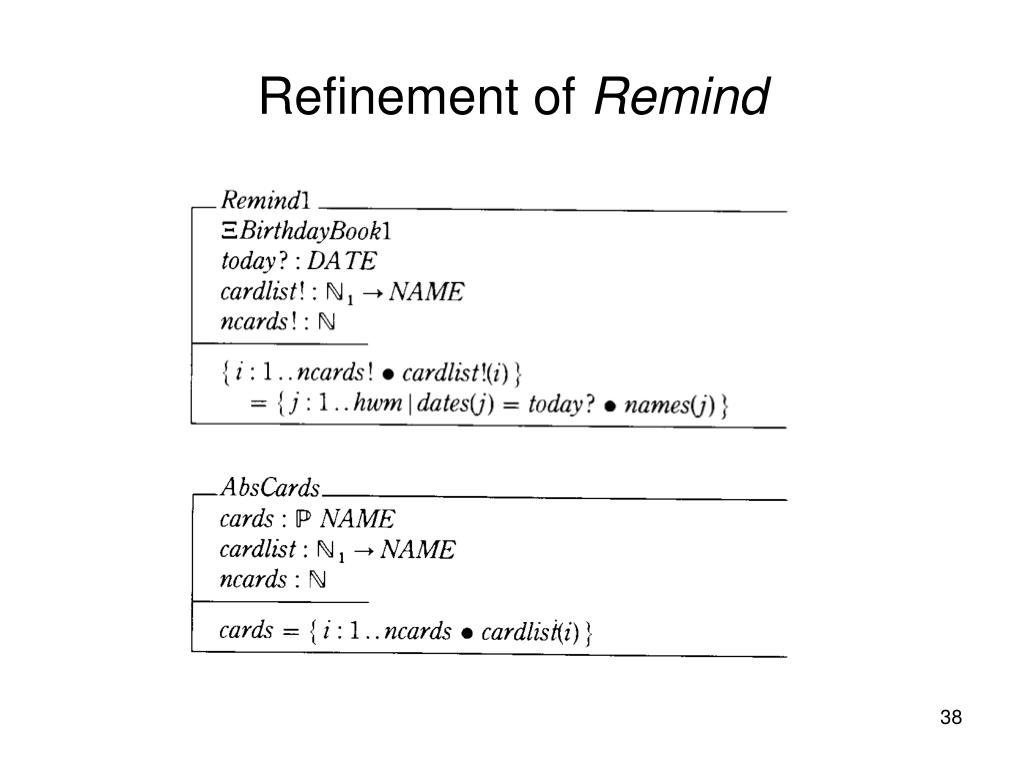 Refinement of Remind
Remind1
ΞBirthdayBook1
today? : DATE
cardlist! : ℕ₁ → NAME
ncards! : ℕ
{ i : 1 . . ncards! ● cardlist!(i) }
= { j : 1 . . hwm | dates(j) = today? ● names(j) }
AbsCards
cards : ℙ NAME
cardlist : ℕ₁ → NAME
ncards : ℕ
cards = { i : 1 . . ncards ● cardlist(i) }
38